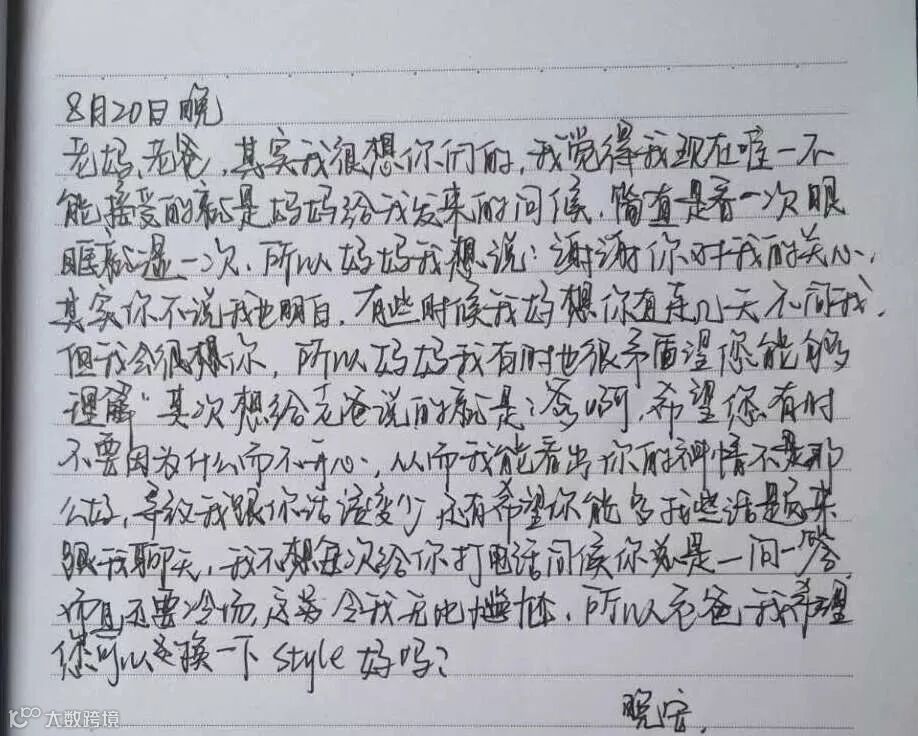 8月20日晚
老妈、老爸,其实我很想你们的,我觉得我现在唯一不
能接受的就是妈妈给我发来的问候,简直是看一次眼
眶就湿一次,所以妈妈我想说:谢谢你对于我的关心,
其实你不说我也明白,有些时候我妈想你有连几天不问我,
但我会很想你,所以妈妈我有时也很矛盾望您能够
理解"其次想给老爸说的就是:爸啊,希望您有时
不要因为什么而不开心,从而我能看出你的神情不是那
么好,导致我跟你话该变少,还有希望你能多找些话题来
跟我聊天,我不想每次给你打电话问候你总是一问一答
而且还要冷场,这另令我无比尴尬,所以老爸我希望
您可以变换一下style好吗?
晚安,
大数跨境